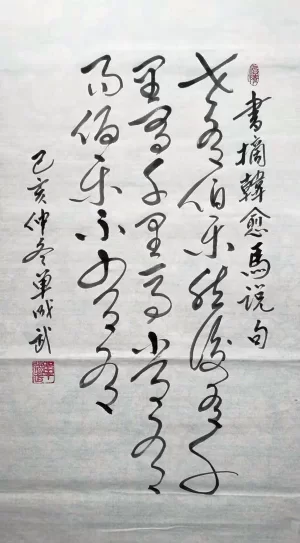 書摘韓愈馬説句
世有伯乐然後有千
里馬千里馬常有
而伯乐不常有
己亥仲冬单成武